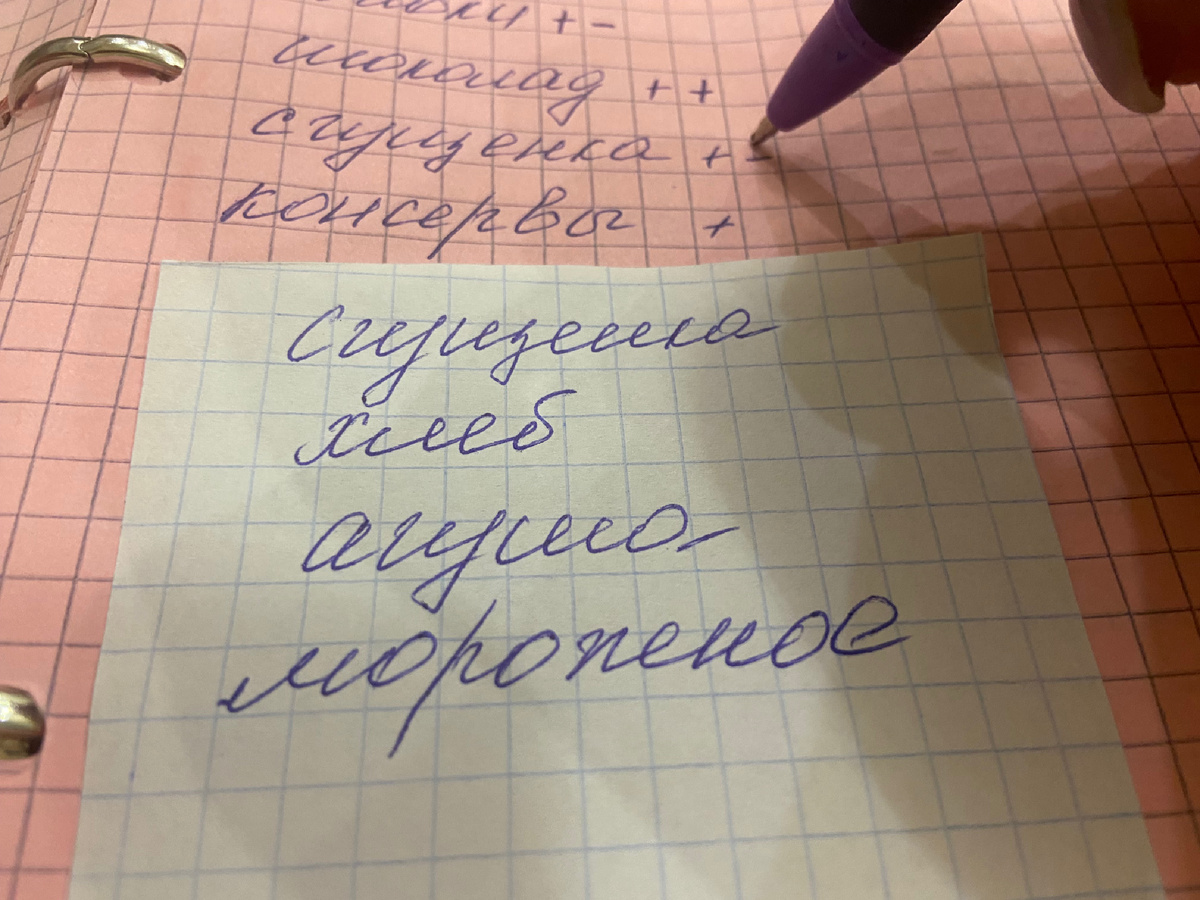 + -
шоколад + +
сгущенка + -
консервы +
сгущенка
хлеб
агуша
мороженое